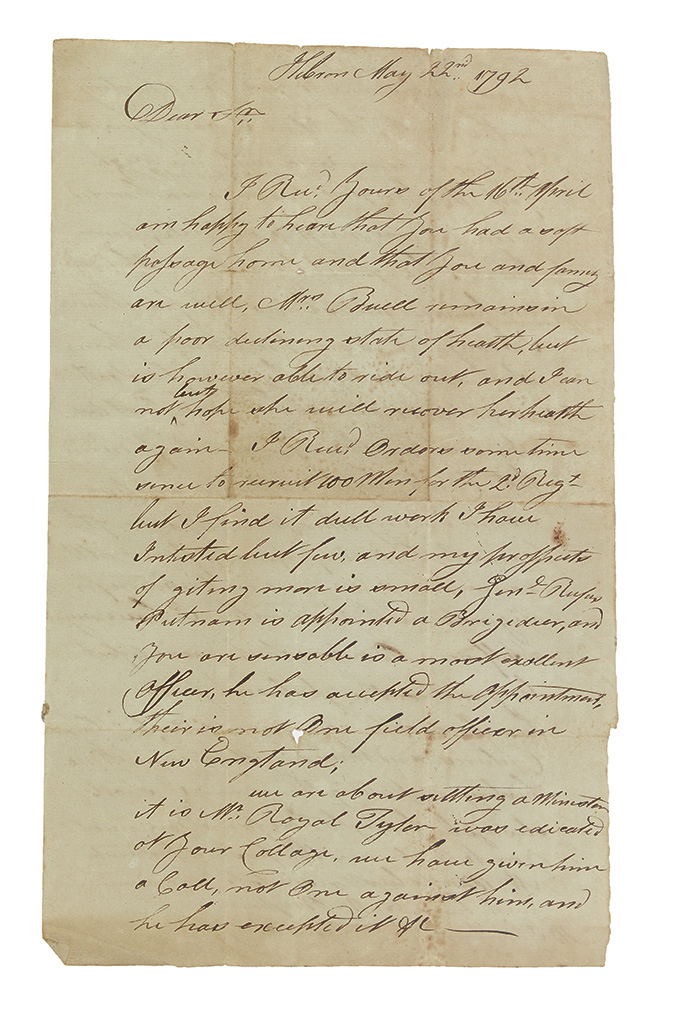 Hebron May 22nd. 1792
Dear Sir
I Recd. Yours of the 16th. April
am happy to heare that You had a soft
passage home and that You and family
are well, Mrs Buell remains in
a poor declining state of health, but
is however able to ride out, and I can
not but hope she will recover her health
again - I Recvd. Orders some time
sence to recruit 100 Men for the 2d. Regt
but I find it dull work I have
Intisted but few, and my prospects
of giting more is small, Genl. Rufus
Putnam is appointed a Brigedeer, and
You are sensable is a most exellent
Officer, he has accepted the Appointment,
their is not One field officer in
New England;
we are about sittling a Minester
it is Mr. Royal Tyler was edicated
at Your Collage, we have given him
a Call, not One against him, and
he has excepted it &c